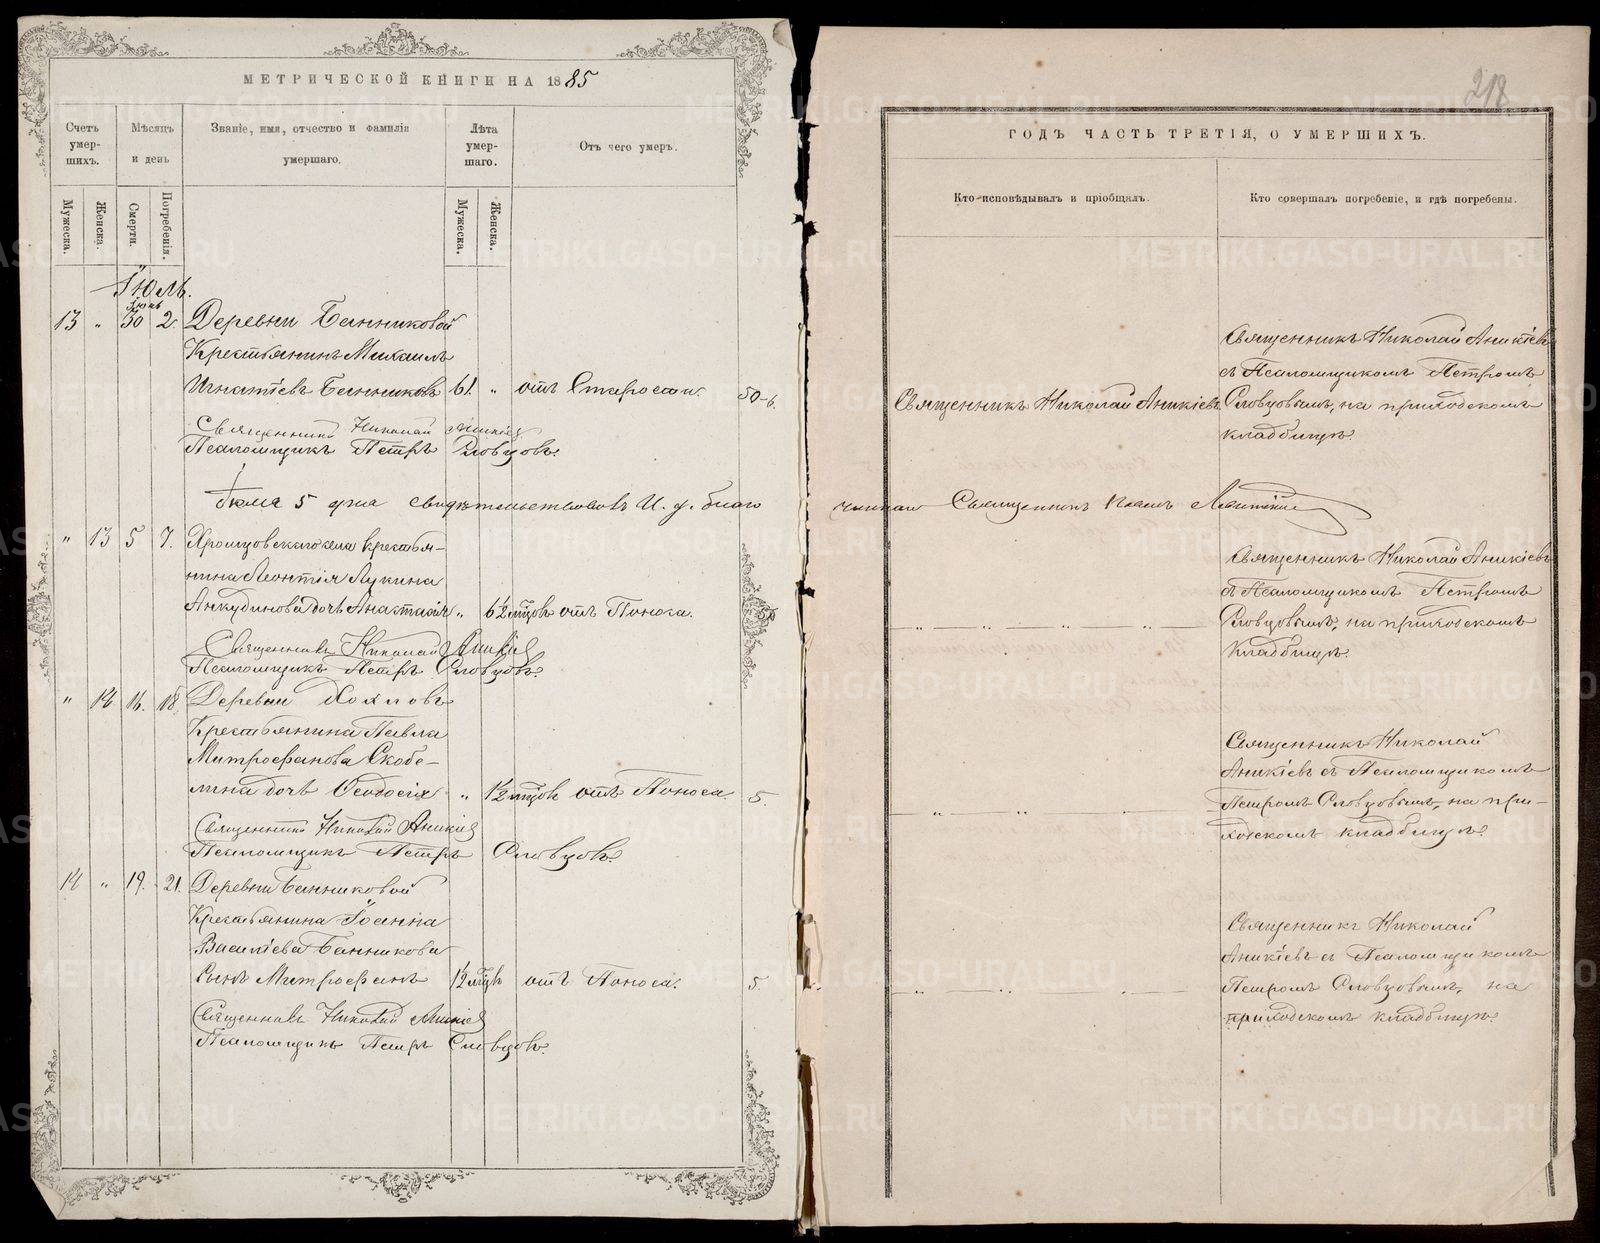 МЕТРИЧЕСКОЙ КНИГИ НА 1885
Счетъ умер-шихъ.
Мѣсяцъ и день
Званіе, имя, отчество и фамилія умершаго.
Лѣта умер-шаго.
Отъ чего умеръ.
Мужеска.
Женска.
Смерти.
Погребенія.
Мужеска.
Женска.
Іюль.
Іюнь
13 " 30 2 Деревни Банниковой
Крестьянинъ Михаилъ
Игнатіевъ Банниковъ 61. " отъ Старости. 50-6.
Священникъ Николай Аникіев
Псаломщикъ Петръ Словцовъ.
Іюля 5 дня свидѣтельствовалъ И. д. благо
" 13 5 7. Хромцовскаго села крестья-
нина Леонтія Лукина
Анкудинова дочь Анастасія " 6½ мѣцовъ отъ Поноса.
Священникъ Николай Аникіев
Псаломщикъ Петръ Словцовъ.
" 14 16. 18. Деревни
Крестьянина Павла
Митрофанова Скобе-
лина дочь Ѳеодосія " 1½ мѣцовъ отъ Поноса. 5.
Священникъ Николай Аникіев
Псаломщикъ Петръ Словцовъ.
14 " 19. 21. Деревни Банниковой
Крестьянина Іоанна
Василіева Банникова
Сынъ Митрофанъ ½ мѣцъ отъ Поноса. 5.
Священникъ Николай Аникіев
Псаломщикъ Петръ Словцовъ.
218
ГОДЪ ЧАСТЬ ТРЕТІЯ, О УМЕРШИХЪ.
Кто исповѣдывалъ и пріобщалъ.
Кто совершалъ погребеніе, и гдѣ погребены.
Священникъ Николай Аникіевъ
Священникъ Николай Аникіевъ
съ Псаломщикомъ Петромъ
Словцовымъ, на приходскомъ
кладбищѣ.
чиннаго Священникъ
Священникъ Николай Аникіевъ
съ Псаломщикомъ Петромъ
Словцовымъ, на приходскомъ
кладбищѣ.
Священникъ Николай
Аникіевъ съ Псаломщикомъ
Петромъ Словцовымъ, на при-
ходскомъ кладбищѣ.
Священникъ Николай
Аникіевъ съ Псаломщикомъ
Петромъ Словцовымъ, на
приходскомъ кладбищѣ.
METRIKI.GASO-URAL.RU